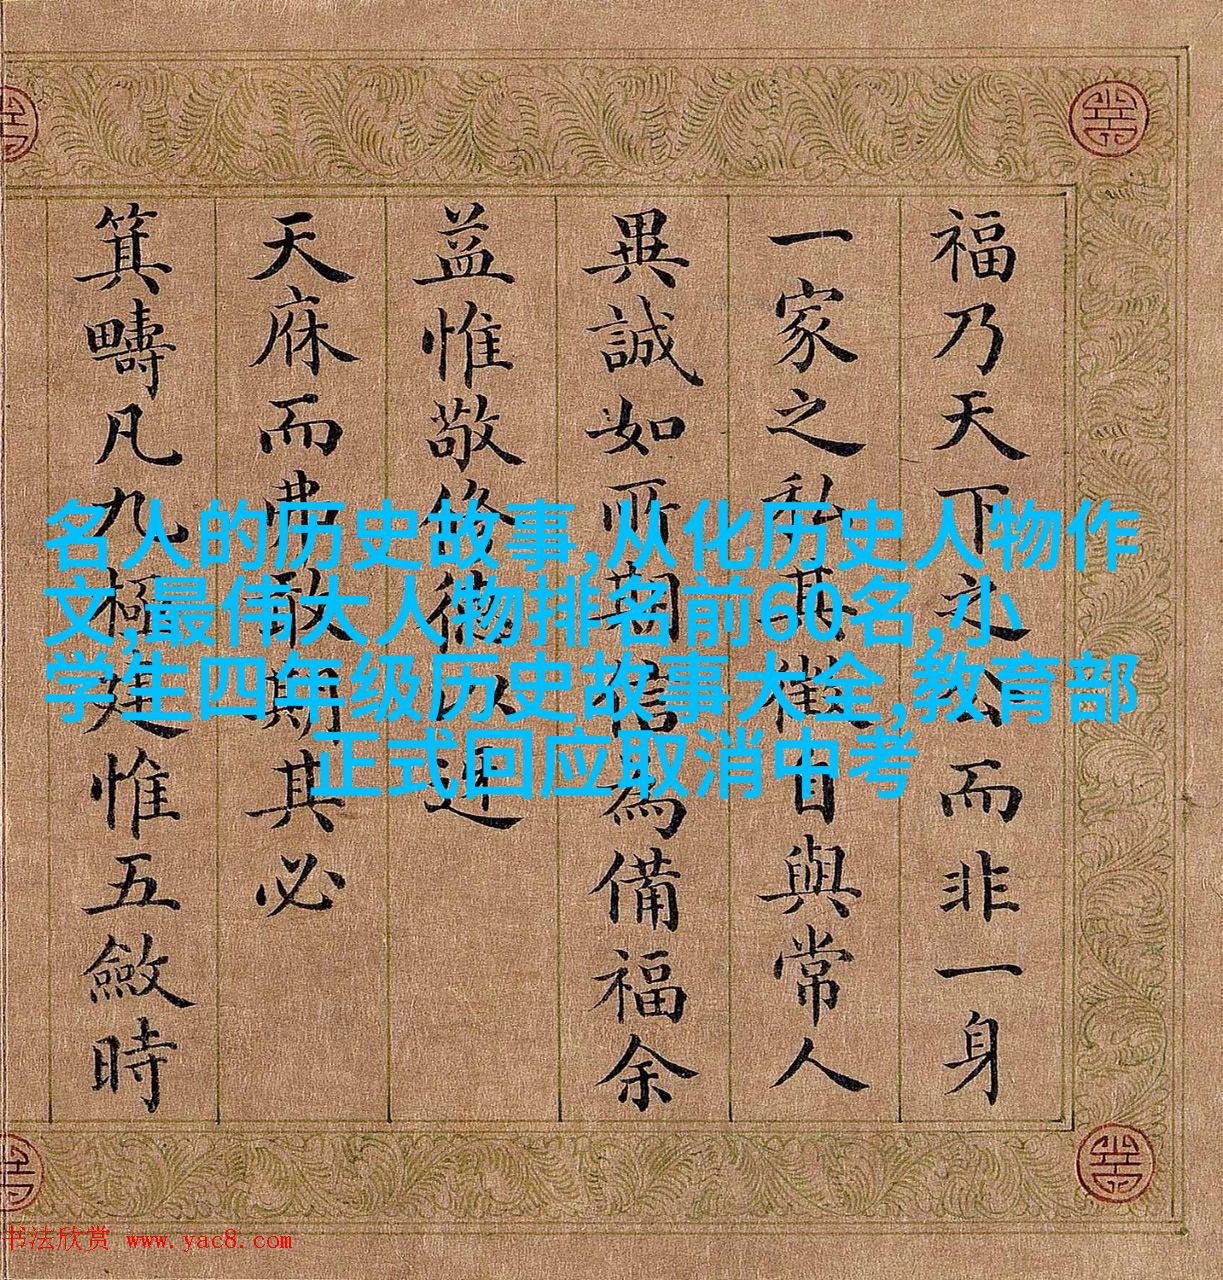 福乃天下之公而非一身
一家之私其自與常人
異誠如所為備福余
益惟敬修德以迓
天庥而弗敢期其必
箕疇凡九極建惟五斂時
名人的历史故事,从化历史人物作
文,最伟大人物排名前60名,小
学生四年级历史故事大全,教育部
正式回应取消中考
书法欣赏 www.yac8.com